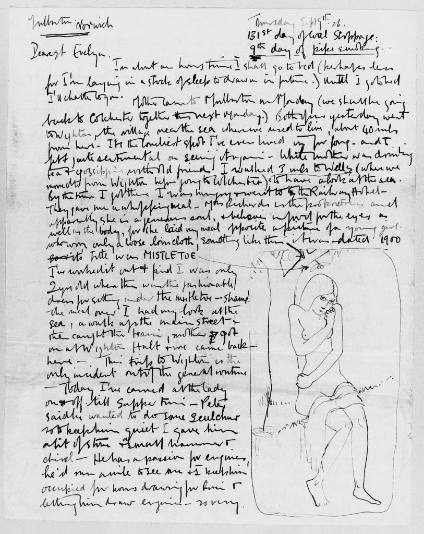 Mulbarton Norwich
Thursday Sept 9th 26.
131st day of Coal Stoppage.
9th day of pipe smoking.
Dearest Evelyn.
In about an hours time I shall go to bed (perhaps less
for I'm laying in a stock of sleep to draw on in future.) Until I go to bed
I'll chatter to you.
Mother came to Mulbarton on Monday (we shall be going
back to Colchester together next Monday.) Both of us yesterday went
to Wighton, the village near the sea where we used to live, about 40 miles
from here. Its the loneliest spot I've ever lived in for long - and I
felt quite sentimental on seeing it again - While mother was drinking
tea & gossiping with old friend I walked 3 miles to Wells (where we
to have a look at the sea.
By the time I got there I was hungry & went to the Railway Hotel -
They gave me a whopping meal - Mrs Richards is the proprietress and
apparently she is a generous soul, & believes in food for the eyes as
well as the body, for she laid my meal opposite a picture of a young girl
who wore only a loose loin cloth, something like this. It was dated 1900
its title was MISTLETOE
I've worked it out & find I was only
2 yrs old when this was the fashionable
dress for sitting under the mistletoe - shame
I had my look at the
sea, a walk up the main street -
then caught the train, mother got
on at Wighton Halt & we came back
here - This trip to Wighton is the
only incident out of the general routine
- Today I've carved at the lady
on & off till Supper time - Peter
said he wanted to do some sculpture
so to keep him quiet I gave him
a bit of stone & small hammer &
chisel - He has a passion for engines,
he'd run a mile to see one & I keep him
occupied for hours drawing for him &
letting him draw engines -